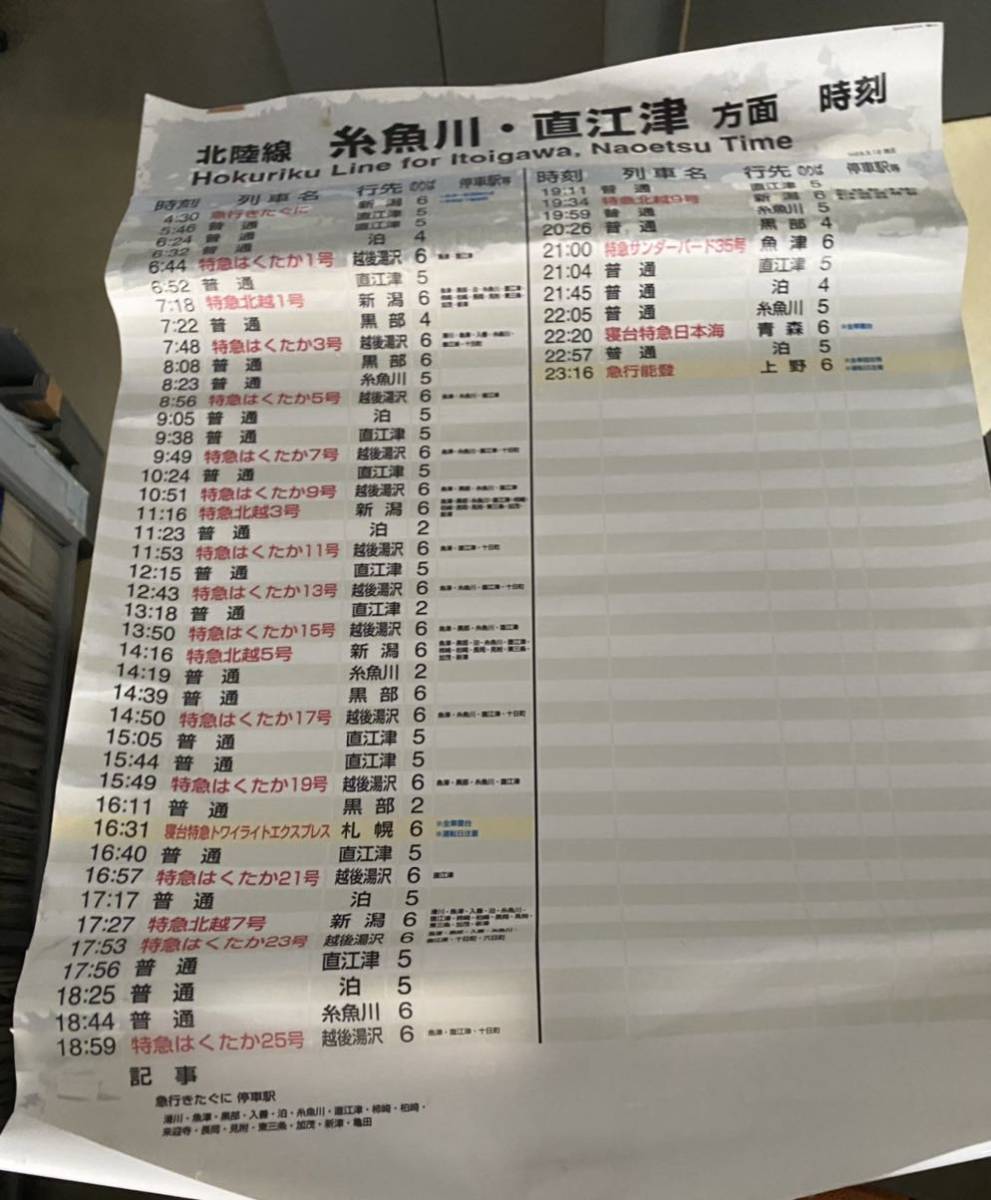 北陸線 糸魚川・直江津 方面 時刻
Hokuriku Line for Itoigawa, Naoetsu Time
時刻 列車名 行先 のりば 停車駅等
4:30 急行きたぐに 新潟 6
5:46 普通 直江津 5
6:24 普通 直江津 5
6:32 普通 泊 4
6:44 特急はくたか1号 越後湯沢 6
6:52 普通 直江津 5
7:18 特急北越1号 新潟 6
7:22 普通 黒部 4
7:48 特急はくたか3号 越後湯沢 6
8:08 普通 黒部 6
8:23 普通 糸魚川 5
8:56 特急はくたか5号 越後湯沢 6 魚津・糸魚川・直江津
9:05 普通 泊 5
9:38 普通 直江津 5
9:49 特急はくたか7号 越後湯沢 6 魚津・糸魚川・直江津・十日町
10:24 普通 直江津 5
10:51 特急はくたか9号 越後湯沢 6 魚津・黒部・糸魚川・直江津
11:16 特急北越3号 新潟 6
11:23 普通 泊 2
11:53 特急はくたか11号 越後湯沢 6 魚津・直江津・十日町
12:15 普通 直江津 5
12:43 特急はくたか13号 越後湯沢 6 魚津・糸魚川・直江津・十日町
13:18 普通 直江津 2
13:50 特急はくたか15号 越後湯沢 6 魚津・黒部・糸魚川・直江津
14:16 特急北越5号 新潟 6
14:19 普通 糸魚川 2
14:39 普通 黒部 6
14:50 特急はくたか17号 越後湯沢 6 魚津・糸魚川・直江津・十日町
15:05 普通 直江津 5
15:44 普通 直江津 5
15:49 特急はくたか19号 越後湯沢 6 魚津・黒部・糸魚川・直江津
16:11 普通 黒部 2
16:31 寝台特急トワイライトエクスプレス 札幌 6 ※全車寝台 ※運転日注意
16:40 普通 直江津 5
16:57 特急はくたか21号 越後湯沢 6 直江津
17:17 普通 泊 5
17:27 特急北越7号 新潟 6
17:53 特急はくたか23号 越後湯沢 6
17:56 普通 直江津 5
18:25 普通 泊 5
18:44 普通 糸魚川 6
18:59 特急はくたか25号 越後湯沢 6 魚津・直江津・十日町
時刻 列車名 行先 のりば 停車駅等
19:11 普通 直江津 5
19:34 特急北越9号 新潟 6
19:59 普通 糸魚川 5
20:26 普通 黒部 4
21:00 特急サンダーバード35号 魚津 6
21:04 普通 直江津 5
21:45 普通 泊 4
22:05 普通 糸魚川 5
22:20 寝台特急日本海 青森 6 ※全車寝台
22:57 普通 泊 5
23:16 急行能登 上野 6
記事
急行きたぐに 停車駅
滑川・魚津・黒部・入善・泊・糸魚川・直江津・柿崎・柏崎・
来迎寺・長岡・見附・東三条・加茂・新津・亀田